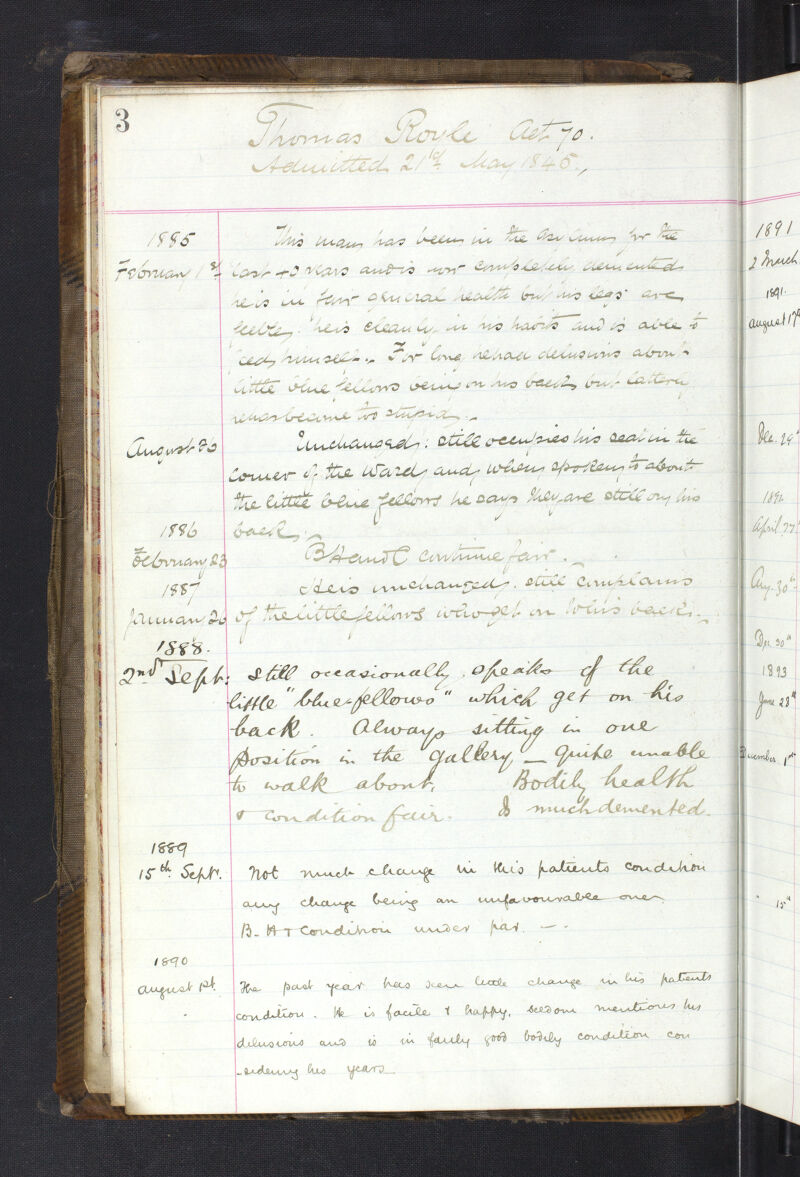 3
Thomas Royle Aet 70.
Admitted 21st May 1845.
1885
February 1st
This man has been in the Asylum for the
last 40 years and is now completely demented
he is in fair general health but his legs are
feeble. he is cleanly in his habits and is able to
feed himself. For long he had delusions about
little blue fellows being on his back but latterly
he has become too stupid.
August 26
Unchanged: still occupies his seat in the
corner of the ward, and when spoken to about
the little blue fellows he says they are still on his
back.
1886
February 23
B H and C continue fair.
1887
January 26
He is unchanged. still complains
of the little fellows who get on to his back.
1888.
2nd Sept:
Still occasionally speaks of the
little "blue-fellows" which get on his
back. Always sitting in one
position in the gallery — quite unable
to walk about. Bodily health
& condition fair. Is much demented.
1889
15th Sept.
Not much change in this patients condition
any change being an unfavourable one
B. H & Condition under par. —
1890
August 1st.
The past year has seen little change in his patients
condition. He is facile & happy, seldom mentions his
delusions and is in fairly good bodily condition con
-sidering his years
1891
2 March
1891.
August 17
Dec. 29
April 27
Aug. 30th
Dec 30th
1893
June 28th
December 1st
" 15th